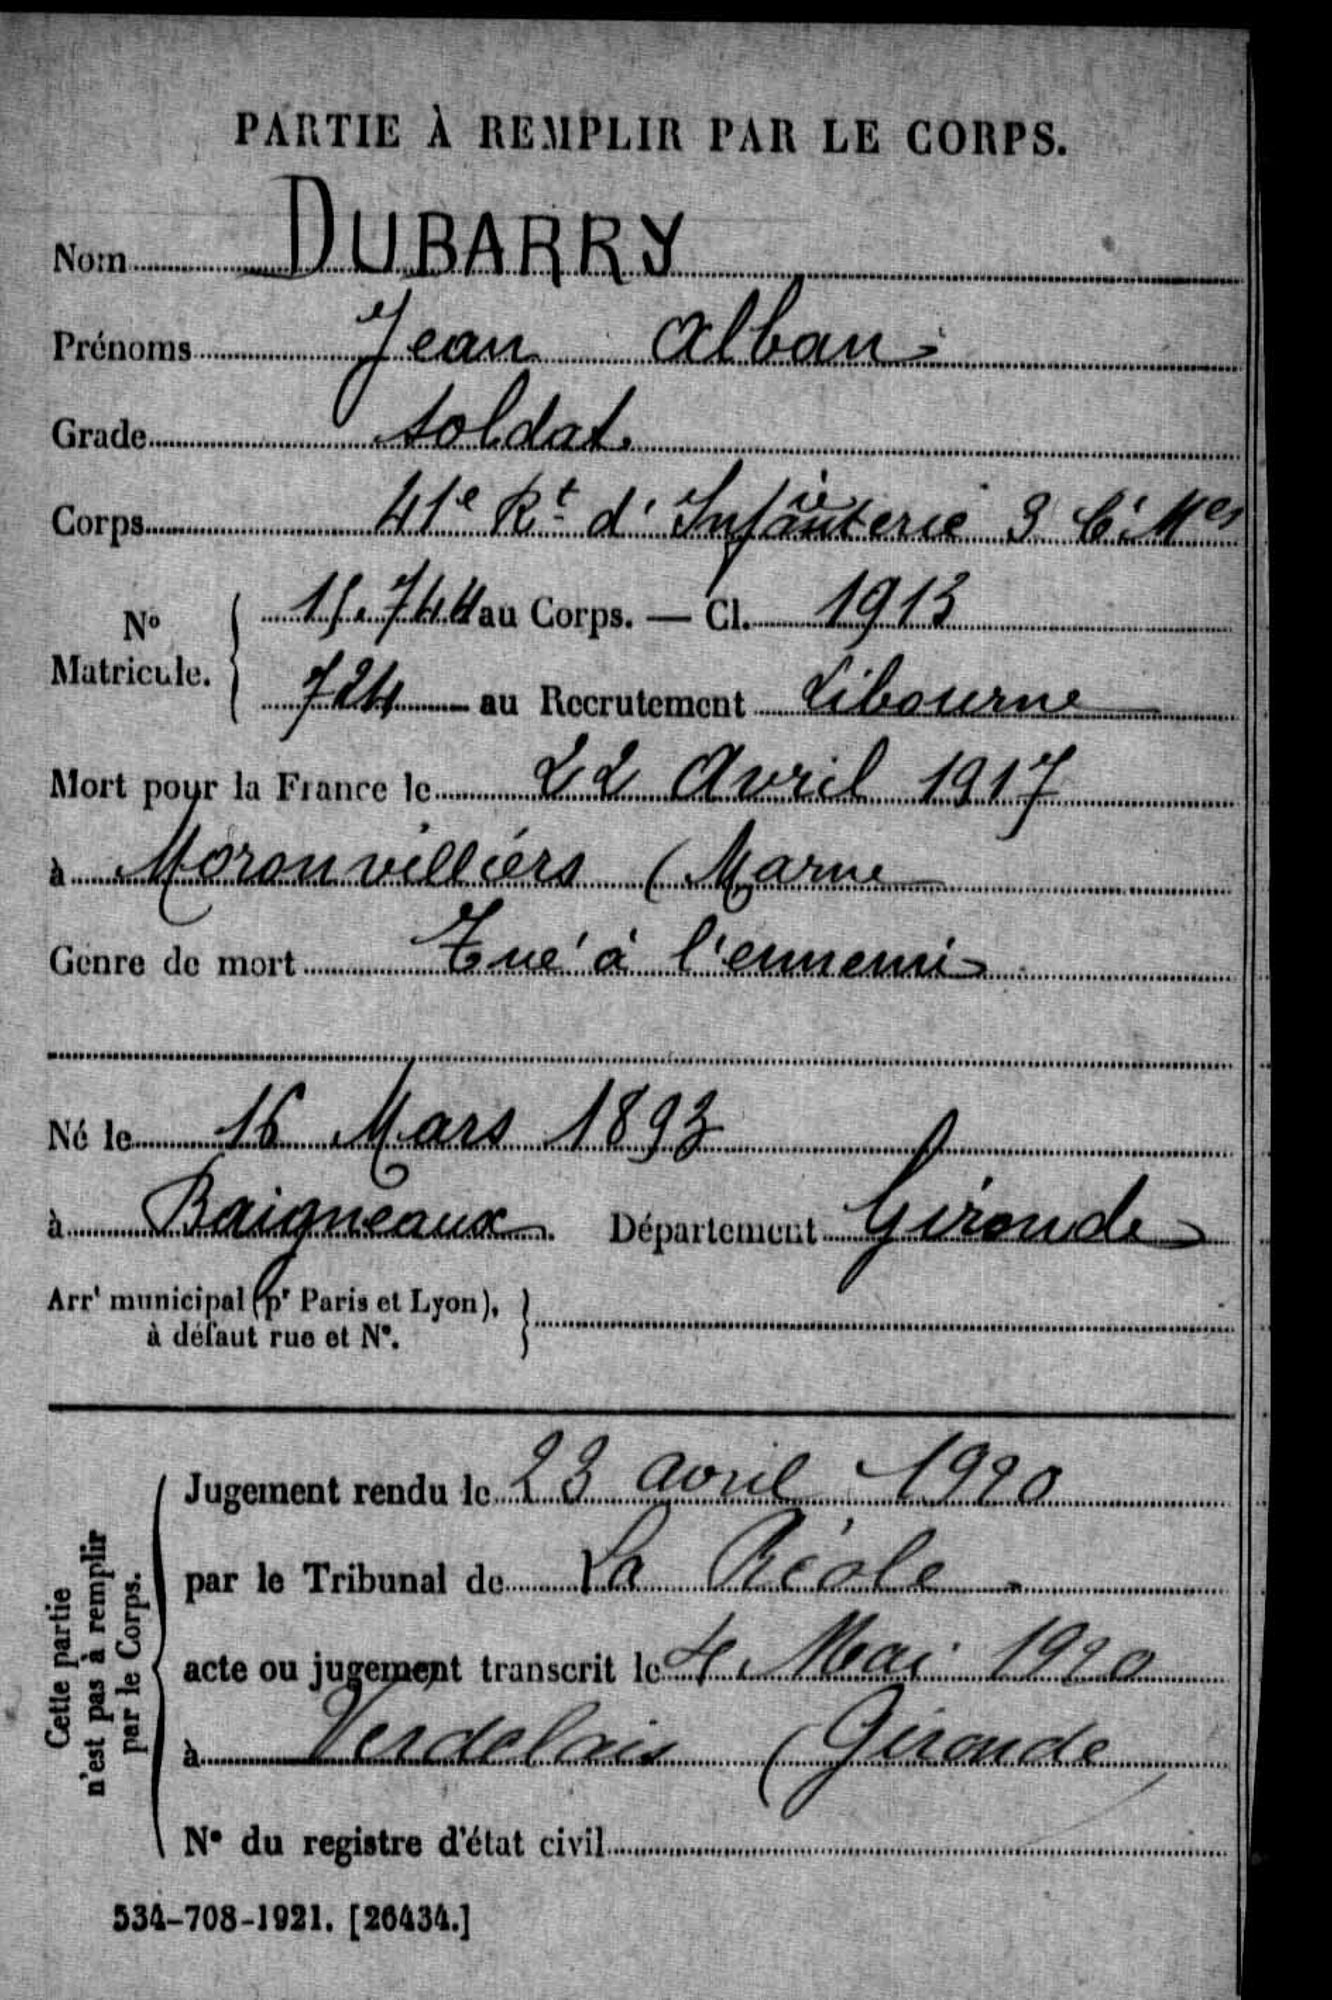 PARTIE À REMPLIR PAR LE CORPS.
Nom DUBARRY
Prénoms Jean Alban
Grade soldat
Corps 41e Rt d'Infanterie 3 Cie Mes
No Matricule. 15.744 au Corps. — Cl. 1913
724 au Recrutement Libourne
Mort pour la France le 22 Avril 1917
à Moronvilliers (Marne
Genre de mort Tué à l'ennemi
Né le 16 Mars 1893
à Baigneaux. Département Gironde
Arrt municipal (pr Paris et Lyon),
à défaut rue et No.
Cette partie
n'est pas à remplir
par le Corps.
Jugement rendu le 23 avril 1920
par le Tribunal de La Réole
acte ou jugement transcrit le 4 Mai 1920
à Verdelais (Gironde
No du registre d'état civil
534-708-1921. [26434.]